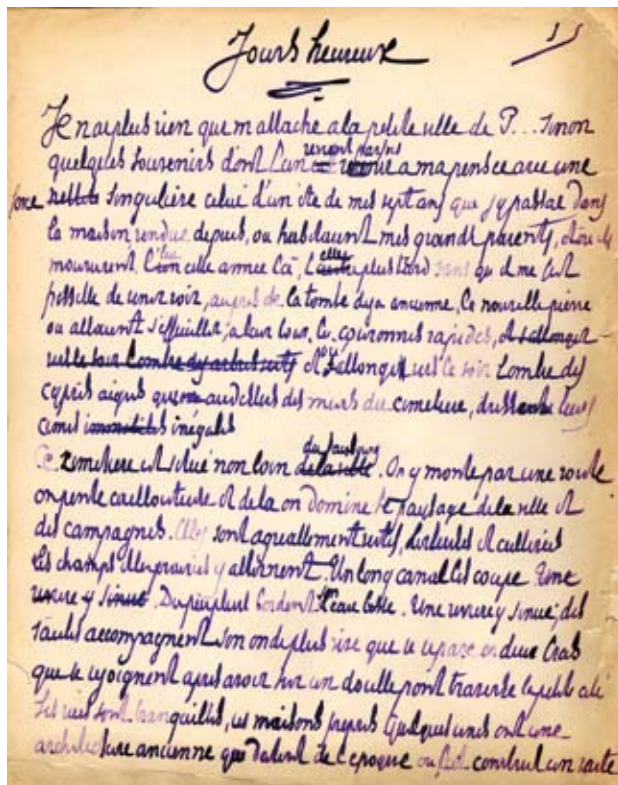 Jours heureux
Je n'ai plus rien qui m'attache à la petite ville de P... sinon
revient parfois
quelques souvenirs dont l'un à ma pensée avec une
force netteté singulière celui d'un été de mes sept ans que j'y passai dans
la maison vendue depuis, où habitaient mes grands parents, 
moururent, l'un cette année là, l'autre plus tard sans qu'il me fut
possible de revoir, auprès de la tombe déjà ancienne, la nouvelle pierre
où allaient s'effeuiller, à leur tour, les couronnes rapides, et s'allonger
vers le soir l'ombre des arbustes verts et où s'allonge vers le soir l'ombre des
cyprès aigus qui au dessus des murs du cimetière, dressent leurs
cimes immobiles inégales
du faubourg
Ce cimetière est situé non loin de la ville. On y monte par une route
en pente caillouteuse et de là on domine le paysage de la ville et
des campagnes. Elles sont agréablement vertes, fertiles et cultivées
Les champs et les prairies y alternent. Un long canal les coupe Une
rivière y sinue. Des peupliers bordent l'eau. Une rivière y sinue; des
saules accompagnent son onde plus vive qui se sépare en deux bras
qui se rejoignent après avoir sur un double pont traversé la petite cité
Ses rues sont tranquilles, ses maisons propres Quelques unes ont une
architecture ancienne qui datent de l'époque où fut construit un vaste